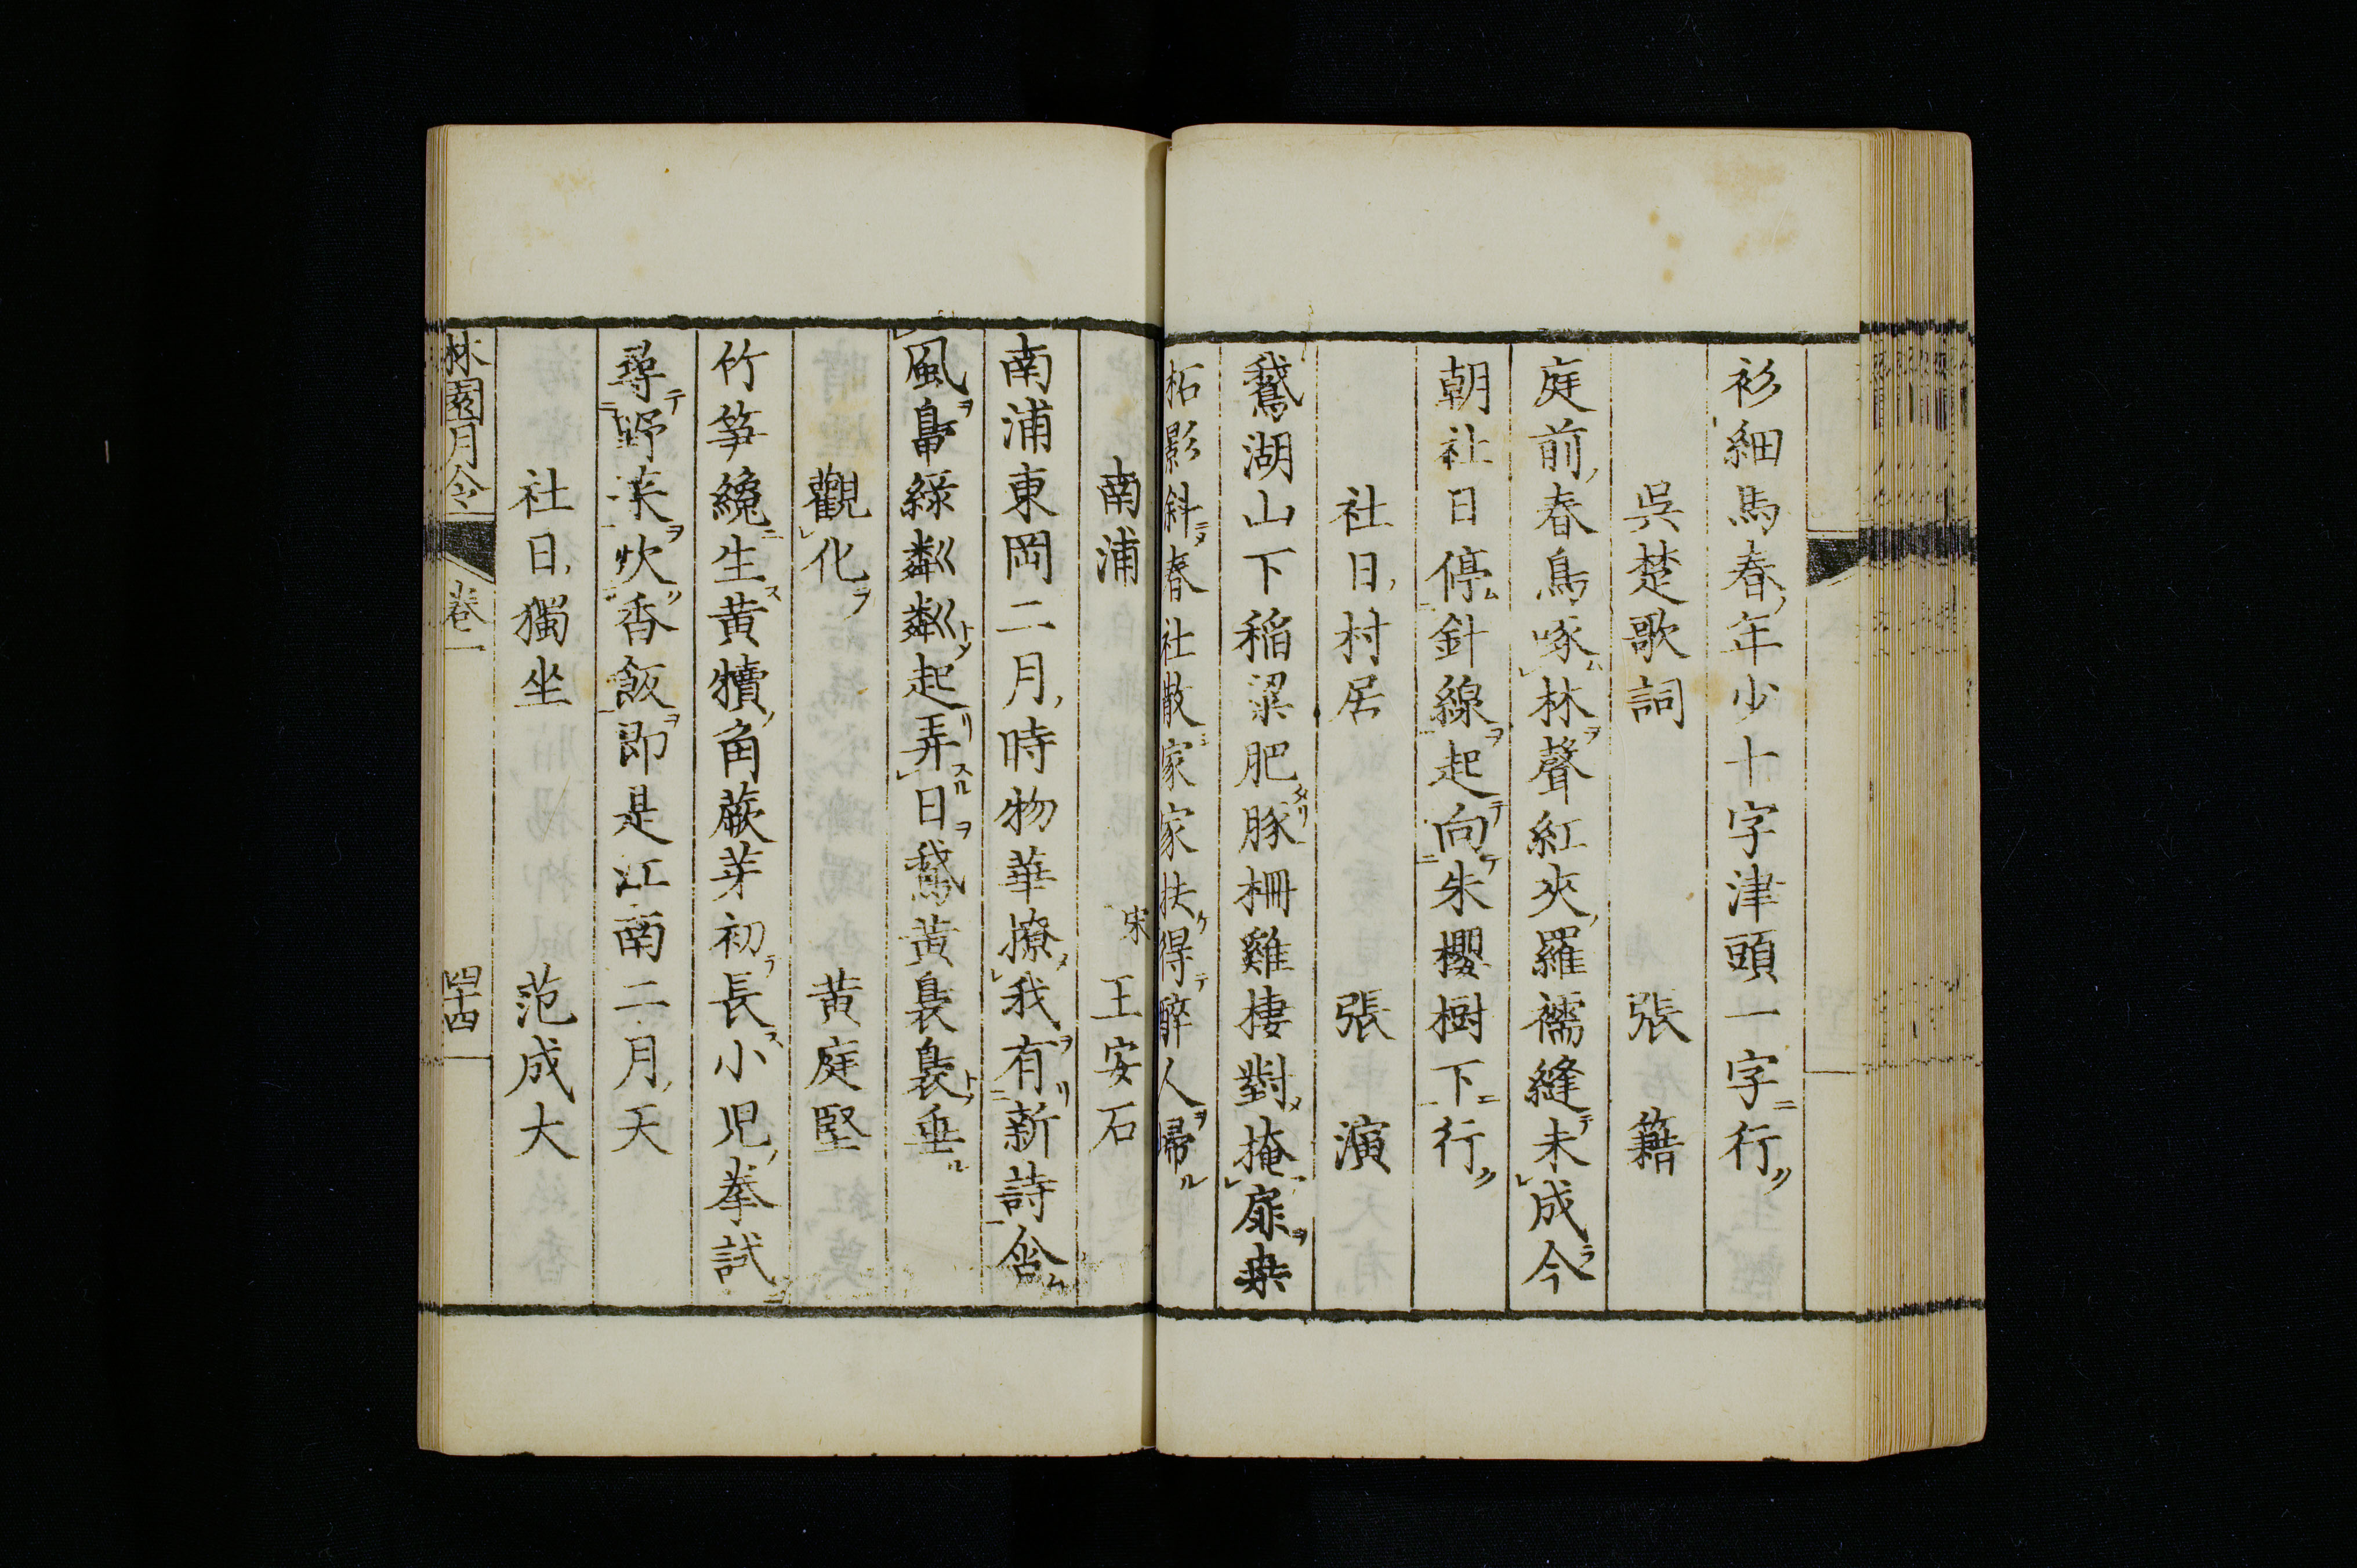 衫細馬春年少十字津頭一字行
吳楚歌詞　張籍
庭前春鳥啄林聲紅夾羅襦縫未成今
朝社日停針線起向朱櫻樹下行
社日村居　張演
鵞湖山下稲粱肥豚柵雞棲對掩扉桒
柘影斜春社散家家扶得醉人歸
南浦　宋　王安石
南浦東岡二月時物華撩我有新詩含
風鴨綠粼粼起弄日鵞黃裊裊垂
觀化　黃庭堅
竹笋纔生黃犢角蕨芽初長小児拳試
尋野菜炊香飯即是江南二月天
社日獨坐　范成大
林園月令　卷一　四十四